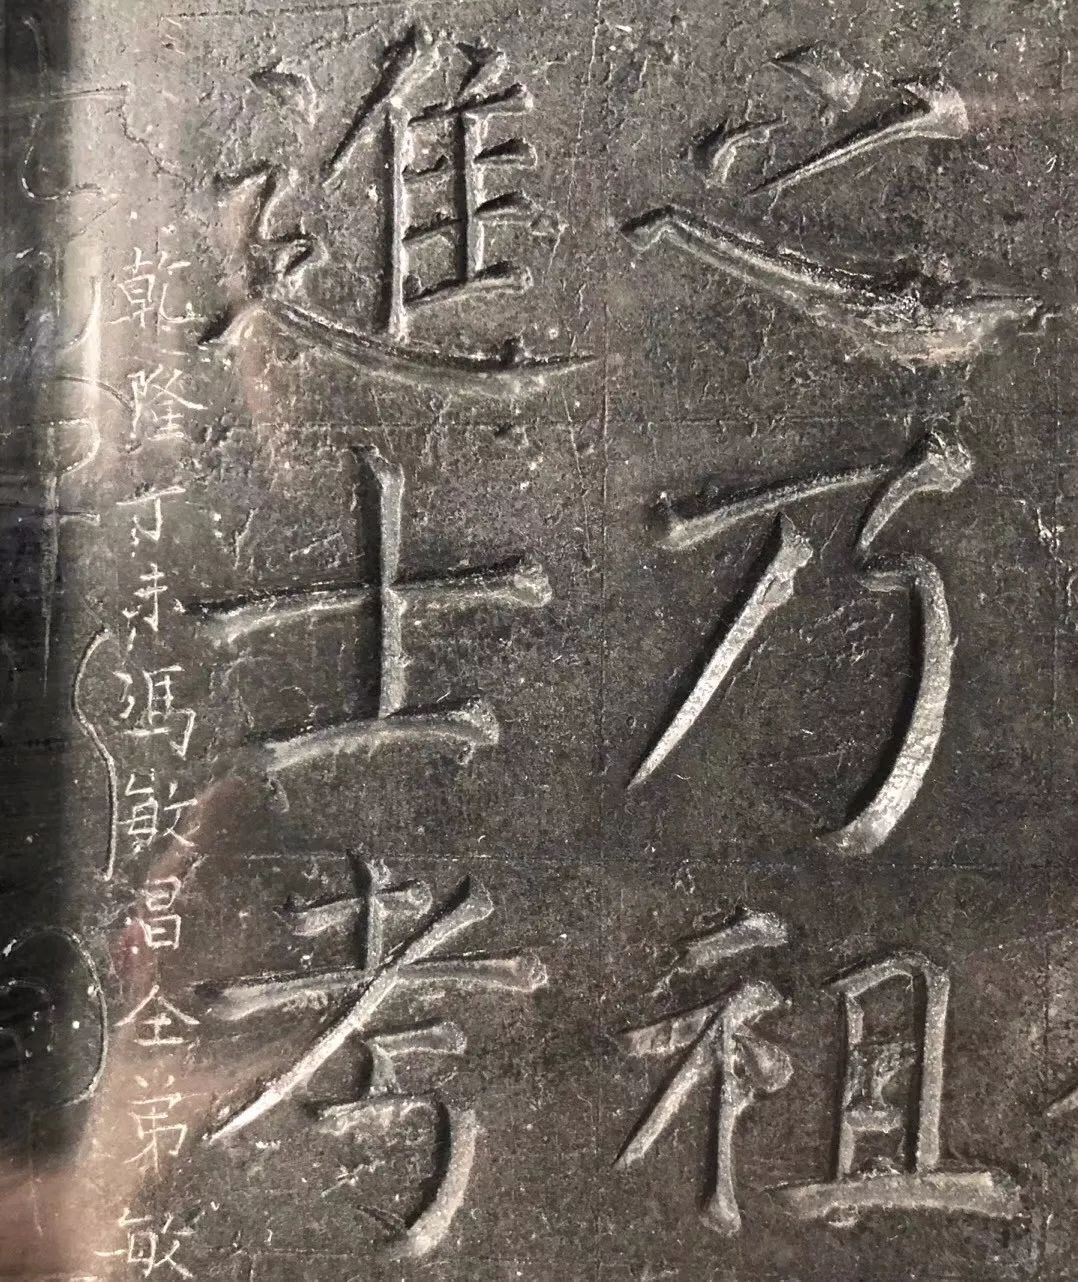 之乃祖
進士考
乾隆丁未馮敏昌仝弟敏